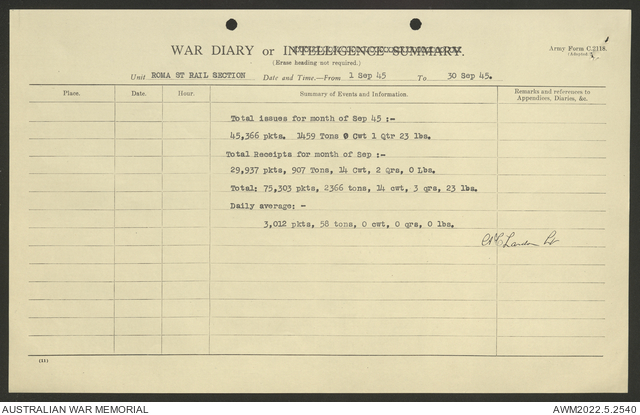 1
WAR DIARY or INTELLIGENCE SUMMARY.
(Erase heading not required.)
Army Form C.2118.
Unit ROMA ST RAIL SECTION Date and Time.—From 1 Sep 45 To 30 Sep 45.
Place. Date Hour. Summary of Events and Information. Remarks and references to Appendices, Diaries, &c.
Total issues for month of Sep 45 :-
45,366 pkts. 1459 Tons 0 Cwt 1 Qtr 23 lbs.
Total Receipts for month of Sep :-
29,937 pkts, 907 Tons, 14 Cwt, 2 Qrs, 0 Lbs.
Total: 75,303 pkts, 2366 tons, 14 cwt, 3 qrs, 23 lbs.
Daily average: -
3,012 pkts, 58 tons, 0 cwt, 0 qrs, 0 lbs.
Lt
AUSTRALIAN WAR MEMORIAL AWM2022.5.2540